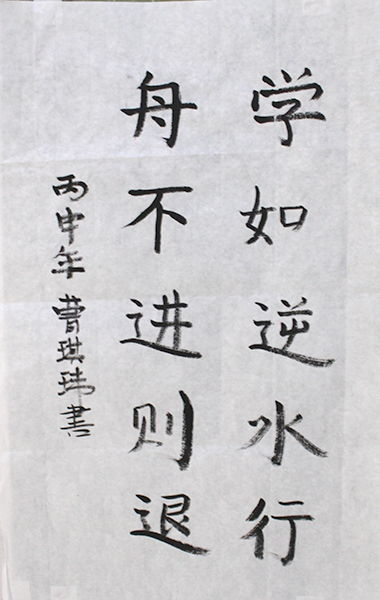 学如逆水行
舟不进则退
丙申年曹琪玮書